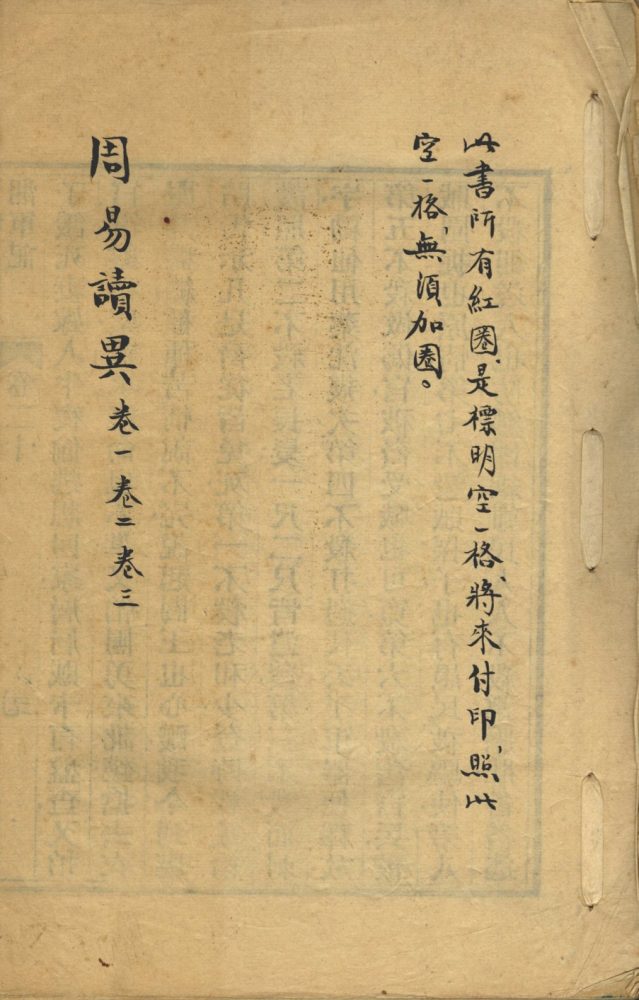 此書所有紅圈、是標明空一格、將來付印、照此
空一格、無須加圈。
周易讀異 卷一卷二卷三